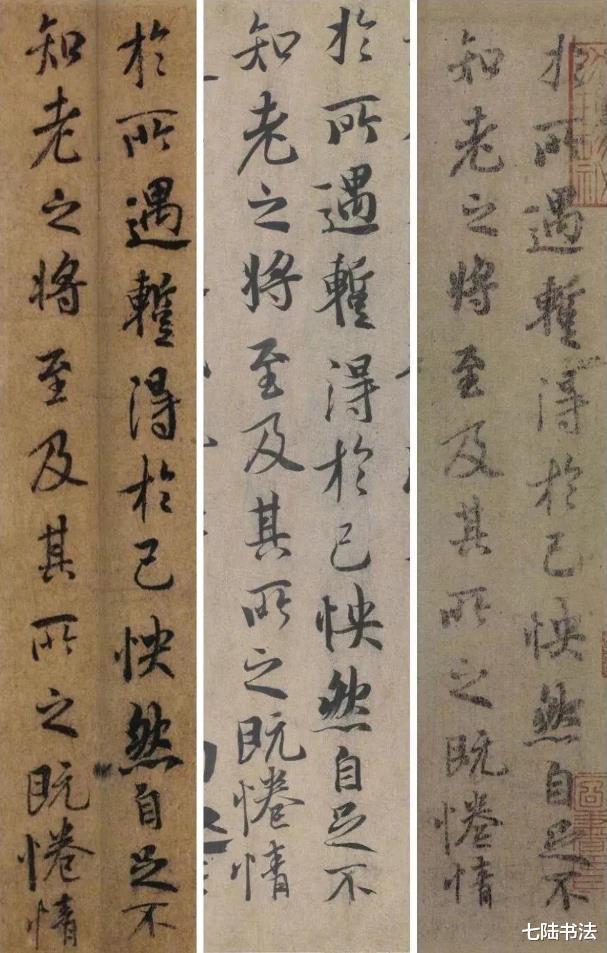 於所遇暫得於己怏然自足不
知老之將至及其所之既惓情
於所遇暫得於己怏然自足不
知老之將至及其所之既惓情
於所遇暫得於己怏然自足不
知老之將至及其所之既惓情
七陆书法